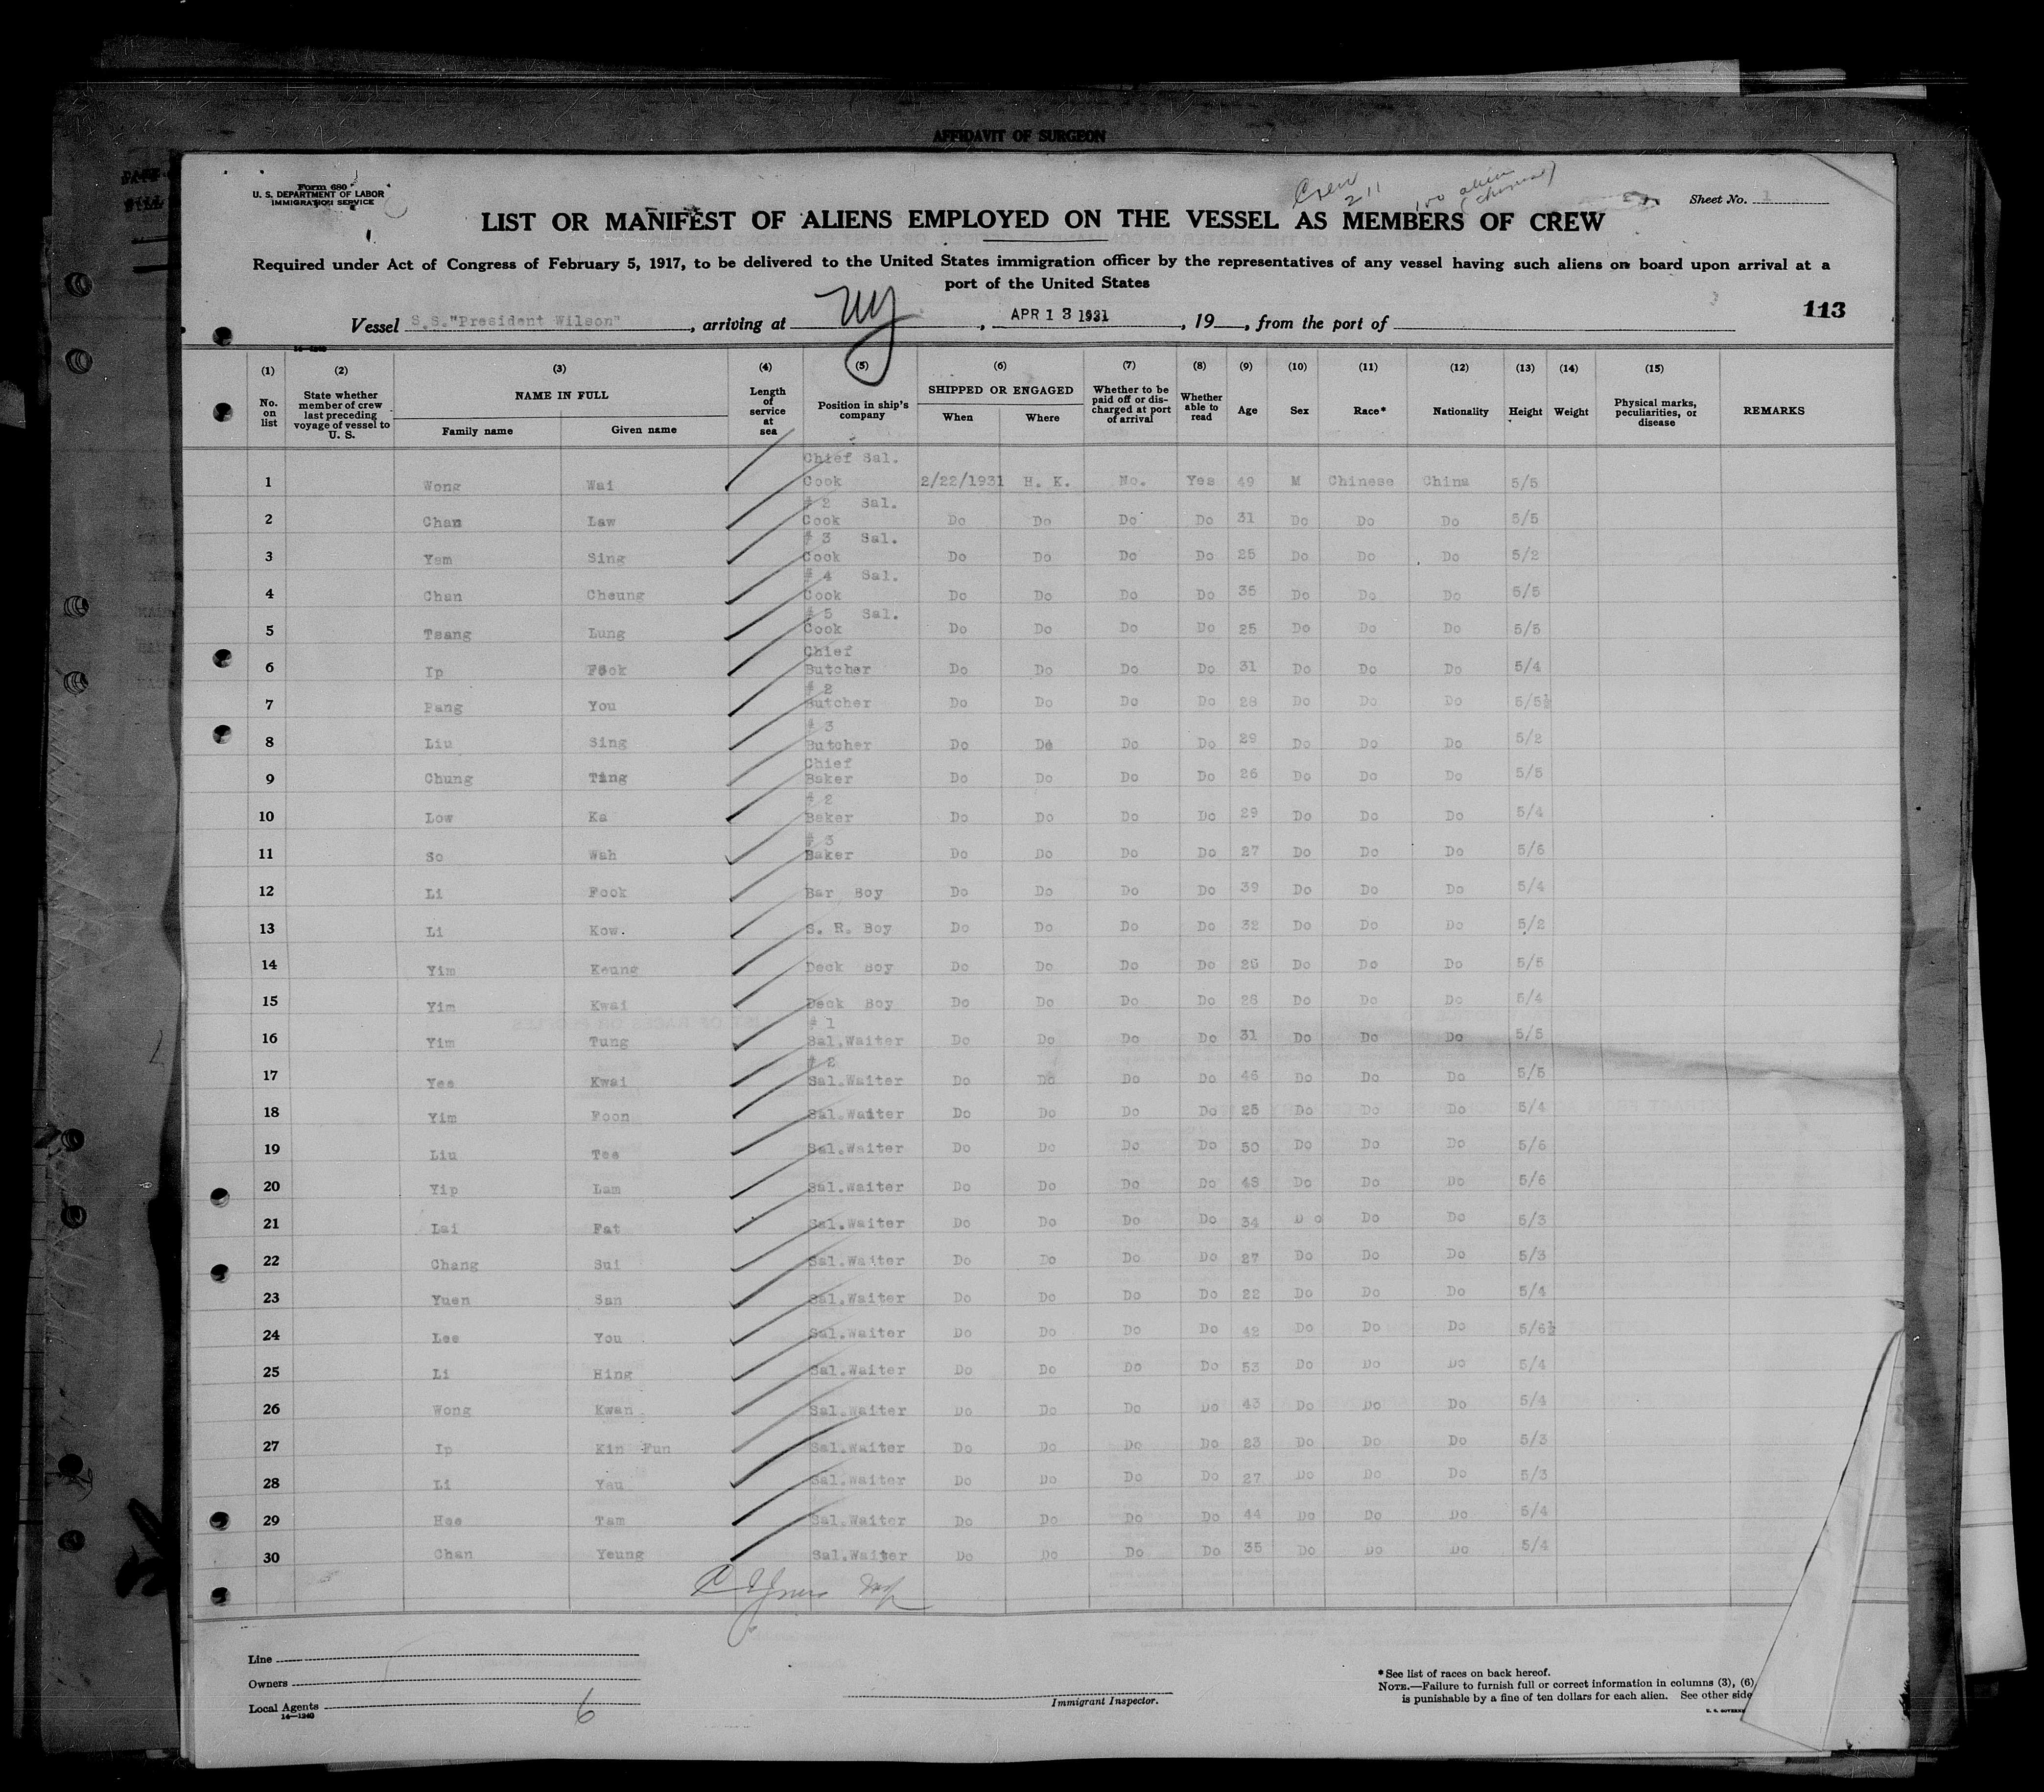 AFFIDAVIT OF SURGEON
Form 680
U. S. DEPARTMENT OF LABOR
IMMIGRATION SERVICE
Crew 211
100 alien (Chinese)
Sheet No. 1
LIST OR MANIFEST OF ALIENS EMPLOYED ON THE VESSEL AS MEMBERS OF CREW
Required under Act of Congress of February 5, 1917, to be delivered to the United States immigration officer by the representatives of any vessel having such aliens on board upon arrival at a
port of the United States
113
Vessel S.S."President Wilson", arriving at NY, APR 13 1931, 19__, from the port of
14—1240
(1) (2) (3) (4) (5) (6) (7) (8) (9) (10) (11) (12) (13) (14) (15)
No. on list
State whether member of crew last preceding voyage of vessel to U. S.
NAME IN FULL
Family name Given name
Length of service at sea
Position in ship's company
SHIPPED OR ENGAGED
When Where
Whether to be paid off or discharged at port of arrival
Whether able to read
Age Sex Race* Nationality Height Weight
Physical marks, peculiarities, or disease
REMARKS
1 Wong Wai Chief Sal. Cook 2/22/1931 H. K. No. Yes 49 M Chinese China 5/5
2 Chan Law # 2 Sal. Cook Do Do Do Do 31 Do Do Do 5/5
3 Yam Sing # 3 Sal. Cook Do Do Do Do 25 Do Do Do 5/2
4 Chan Cheung # 4 Sal. Cook Do Do Do Do 35 Do Do Do 5/5
5 Tsang Lung # 5 Sal. Cook Do Do Do Do 25 Do Do Do 5/5
6 Ip Fook Chief Butcher Do Do Do Do 31 Do Do Do 5/4
7 Pang You # 2 Butcher Do Do Do Do 28 Do Do Do 5/5½
8 Liu Sing # 3 Butcher Do Do Do Do 29 Do Do Do 5/2
9 Chung Ting Chief Baker Do Do Do Do 26 Do Do Do 5/5
10 Low Ka # 2 Baker Do Do Do Do 29 Do Do Do 5/4
11 So Wah # 3 Baker Do Do Do Do 27 Do Do Do 5/6
12 Li Fook Bar Boy Do Do Do Do 39 Do Do Do 5/4
13 Li Kow. S. R. Boy Do Do Do Do 32 Do Do Do 5/2
14 Yim Keung Deck Boy Do Do Do Do 26 Do Do Do 5/5
15 Yim Kwai Deck Boy Do Do Do Do 28 Do Do Do 5/4
16 Yim Tung # 1 Sal.Waiter Do Do Do Do 31 Do Do Do 5/5
17 Yee Kwai # 2 Sal.Waiter Do Do Do Do 46 Do Do Do 5/5
18 Yim Foon Sal.Waiter Do Do Do Do 25 Do Do Do 5/4
19 Liu Tee Sal.Waiter Do Do Do Do 50 Do Do Do 5/6
20 Yip Lam Sal.Waiter Do Do Do Do 48 Do Do Do 5/6
21 Lai Fat Sal.Waiter Do Do Do Do 34 Do Do Do 5/3
22 Chang Sui Sal.Waiter Do Do Do Do 27 Do Do Do 5/3
23 Yuen San Sal.Waiter Do Do Do Do 22 Do Do Do 5/4
24 Lee You Sal.Waiter Do Do Do Do 42 Do Do Do 5/6½
25 Li Hing Sal.Waiter Do Do Do Do 53 Do Do Do 5/4
26 Wong Kwan Sal.Waiter Do Do Do Do 43 Do Do Do 5/4
27 Ip Kin Fun Sal.Waiter Do Do Do Do 23 Do Do Do 5/3
28 Li Yau Sal.Waiter Do Do Do Do 27 Do Do Do 5/3
29 Hee Tam Sal.Waiter Do Do Do Do 44 Do Do Do 5/4
30 Chan Yeung Sal.Waiter Do Do Do Do 35 Do Do Do 5/4
Line
Owners
Local Agents
14—1240
6
Immigrant Inspector.
*See list of races on back hereof.
NOTE.—Failure to furnish full or correct information in columns (3), (6)
is punishable by a fine of ten dollars for each alien. See other side
U. S. GOVERN